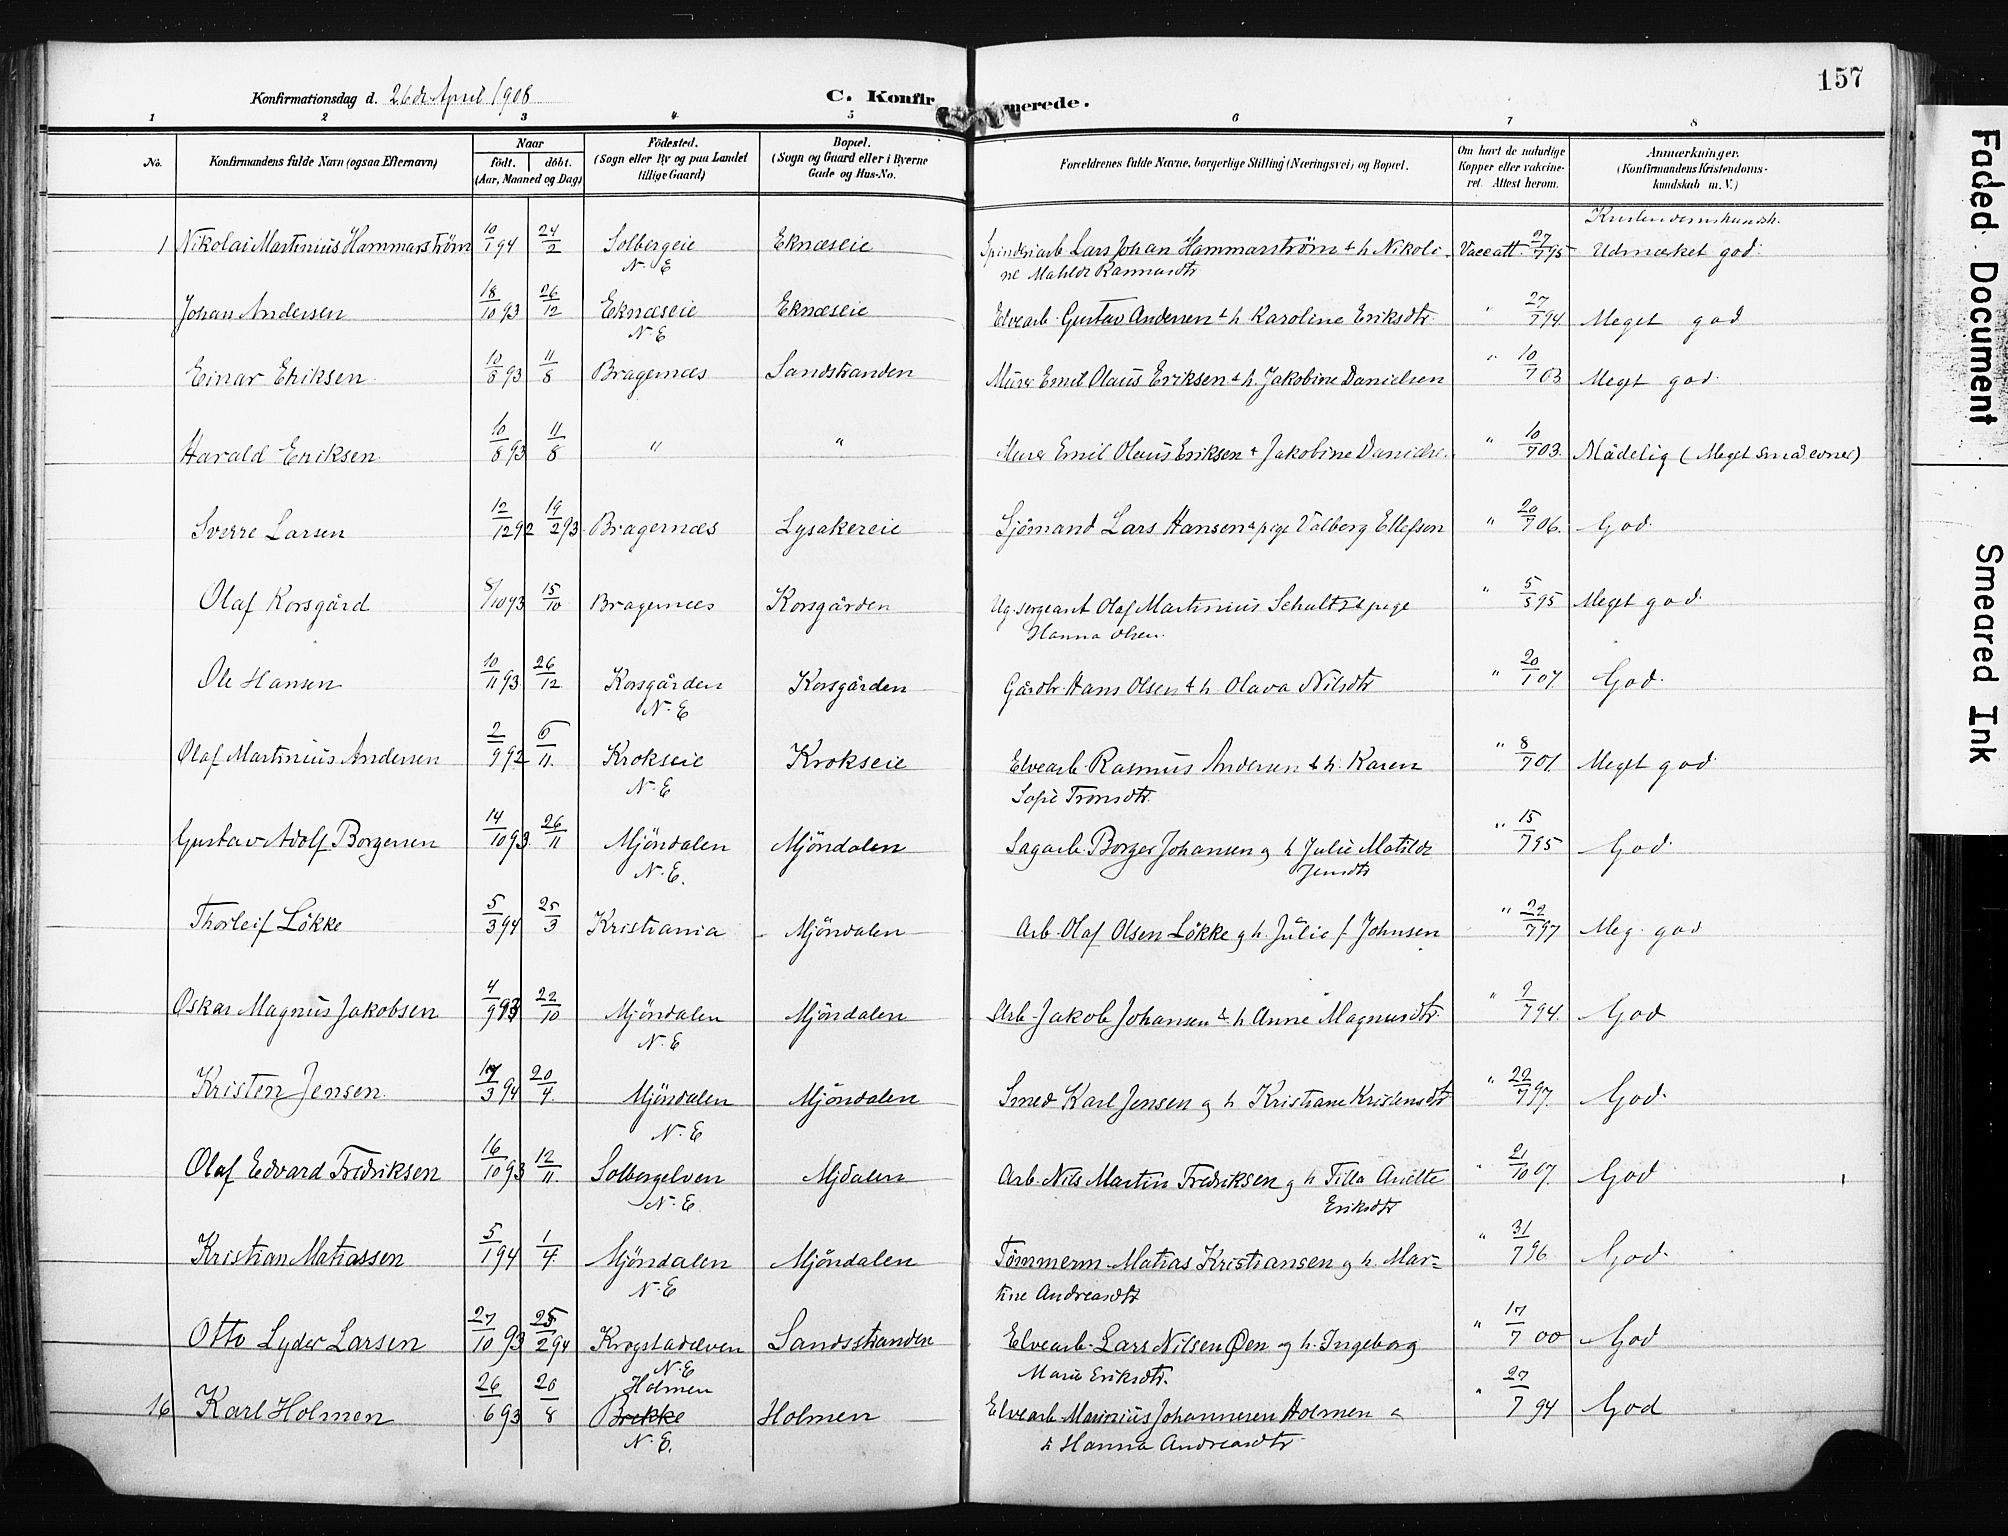 157
Konfirmationsdag d. 26de April 1908
C. Konfirmerede.
1 2 3 4 5 6 7 8
No. Konfirmandens fulde Navn (ogsaa Efternavn) Naar födt. döbt. (Aar, Maaned og Dag) Födested. (Sogn eller By og paa Landet tillige Gaard) Bopæl. (Sogn og Gaard eller i Byerne Gade og Hus-No. Forældrenes fulde Navne, borgerlige Stilling (Næringsvei) og Bopæl. Om havt de naturlige Kopper eller vakcineret. Attest herom. Anmærkninger. (Konfirmandens Kristendomskundskab m. V.)
Kristendomskundsk.
1 Nikolai Martinius Hammarstrøm 10/1 94 24/2 Solbergeie Eknæseie Spinderiarb Lars Johan Hammarström & h Nikoli- Vacc att. 27/7 95 Udmærket god.
N. E ne Matilde
Johan Andersen 18/10 93 26/12 Eknæseie Eknæseie Elvearb. Gustav Andersen & h Karoline Eriksdtr. " 27/7 94 Meget god
N. E
Einar Eriksen 10/8 93 11/8 Bragernæs Sandstranden Murer Emil Olaus Eriksen & h. Jakobine Danielsen " 10/7 03 Meget god.
Harald Eriksen 10/8 93 11/8 " " Murer Emil Olaus Eriksen & Jakobine Danielse. " 10/7 03. Mådelig (Meget små evner)
Sverre Larsen 12/12 92 19/2 93. Bragernæs Lysakereie Sjömand Lars Hansen & pige Valborg Ellefsen " 20/7 06. God.
Olaf Korsgård 8/10 93 15/10 Bragernæs Korsgården Ug. sergeant Olaf Martinius Schultz & pige " 5/5 95 Meget god.
Hanna Olsen.
Ole Hansen 10/11 93 26/12 Korsgården Korsgården Gårdbr. Hans Olsen & h Olava Nilsdtr " 20/1 07 God.
N. E
Olaf Martinius Andersen 2/9 92 6/11. Krokseie Krokseie Elvearb Rasmus Andersen & h. Karen " 8/7 01. Meget god
N. E Sofie Tronsdtr.
Gustav Adolf Borgersen 14/10 93. 26/11 Mjöndalen Mjöndalen Sagarb. Borger Johansen g h Julie Matilde " 15/7 95 God.
N. E. Jensdtr
Thorleif Lökke 5/3 94 25/3 Kristiania Mjöndalen Arb. Olaf Olsen Lökke g h. Julie f Johnsen " 22/7 97 Meg. god
Oskar Magnus Jakobsen 4/9 93 22/10 Mjöndalen Mjöndalen Arb. Jakob Johansen & h Anne Magnusdtr. " 9/7 94. God
N. E
Kristen Jensen. 17/3 94 20/4. Mjöndalen Mjöndalen Smed Karl Jensen g h Kristiane Kristensdtr " 22/7 97. God.
N. E
Olaf Edvard Fredriksen 16/10 93 12/11. Solbergelven Mjdalen Arb. Nils Martin Fredriksen g h Tilla Anette " 21/10 07. God
N. E. Eriksdtr
Kristian Matiassen 5/1 94 1/4. Mjöndalen Mjöndalen Tömmerm. Matias Kristiansen g h. Mar- " 31/7 96. God.
N. E tine Andreasdtr
Otto Lyder Larsen 27/10 93 25/2 94 Krogstadelven Sandsstranden Elvearb. Lars Nilsen Øen g h. Ingeborg " 17/7 00 God
N. E Marie Eriksdtr.
Holmen
16 Karl Holmen 26/6 93 20/8 Brekke Holmen Elvearb. Johannesen Holmen & " 27/7 94 God
N. E. h Hanna Andreasdtr.
Faded Document
Smeared Ink